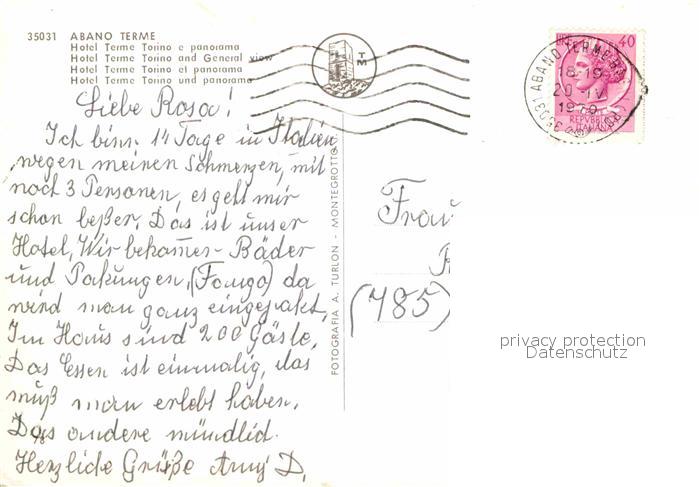 35031 ABANO TERME
Hotel Terme Torino e panorama
Hotel Terme Torino and General view
Hotel Terme Torino et panorama
Hotel Terme Torino und panorama
T M
40
ABANO TERME
18-19
20-IV
1970
REPVBBLICA
ITALIANA
Liebe Rosa!
Ich bin 14 Tage in Italien
wegen meinen Schmerzen, mit
noch 3 Personen, es geht mir
schon beßer. Das ist unser
Hotel, Wir bekommen Bäder
und Pakungen, (Fango) da
wird man ganz eingepakt,
Im Haus sind 200 Gäste,
Das Essen ist einmalig, das
muß man erlebt haben.
Das andere mündlich.
Herzliche Grüße D.
FOTOGRAFIA A. TURLON - MONTEGROTTO
Frau
(785)
privacy protection
Datenschutz